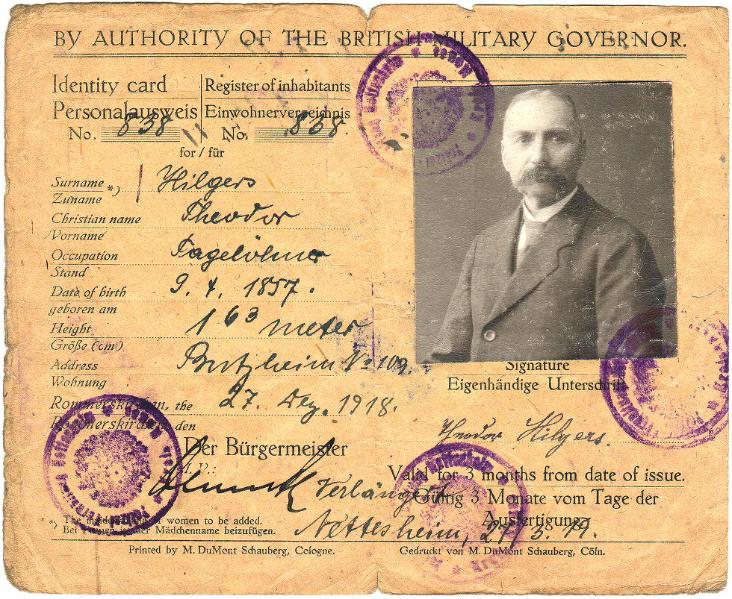 BY AUTHORITY OF THE BRITISH MILITARY GOVERNOR.
Identity card
Personalausweis
No. 838
Register of inhabitants
Einwohnerverzeichnis
No. 838
for / für
Surname *) Hilgers
Zuname
Christian name Theodor
Vorname
Occupation Tagelöhner
Stand
Date of birth 9. 4. 1857.
geboren am
Height 1 63 meter
Größe (cm)
Address Butzheim No 109.
Wohnung
Rommerskirchen, the 27. Dez. 1918.
Rommerskirchen, den
Der Bürgermeister
I.V.:
*) The maiden name of women to be added.
Bei Frauen ist der Mädchenname beizufügen.
Printed by M. DuMont Schauberg, Cologne.
Signature
Eigenhändige Unterschrift
Theodor Hilgers.
Valid for 3 months from date of issue.
Gültig 3 Monate vom Tage der
Ausfertigung.
Verlängert
Nettesheim, 27. 3. 19.
Gedruckt von M. DuMont Schauberg, Cöln.